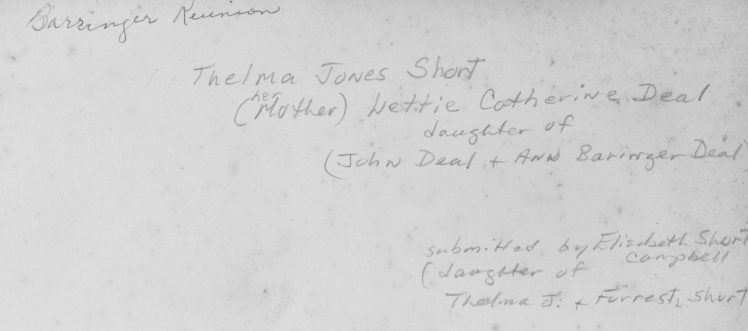 Barringer Reunion
Thelma Jones Short
(her Mother) Nettie Catherine Deal
daughter of
(John Deal + Ann Baringer Deal
submitted by Elizabeth Short
Campbell
(daughter of
Thelma J. + Forrest L Short